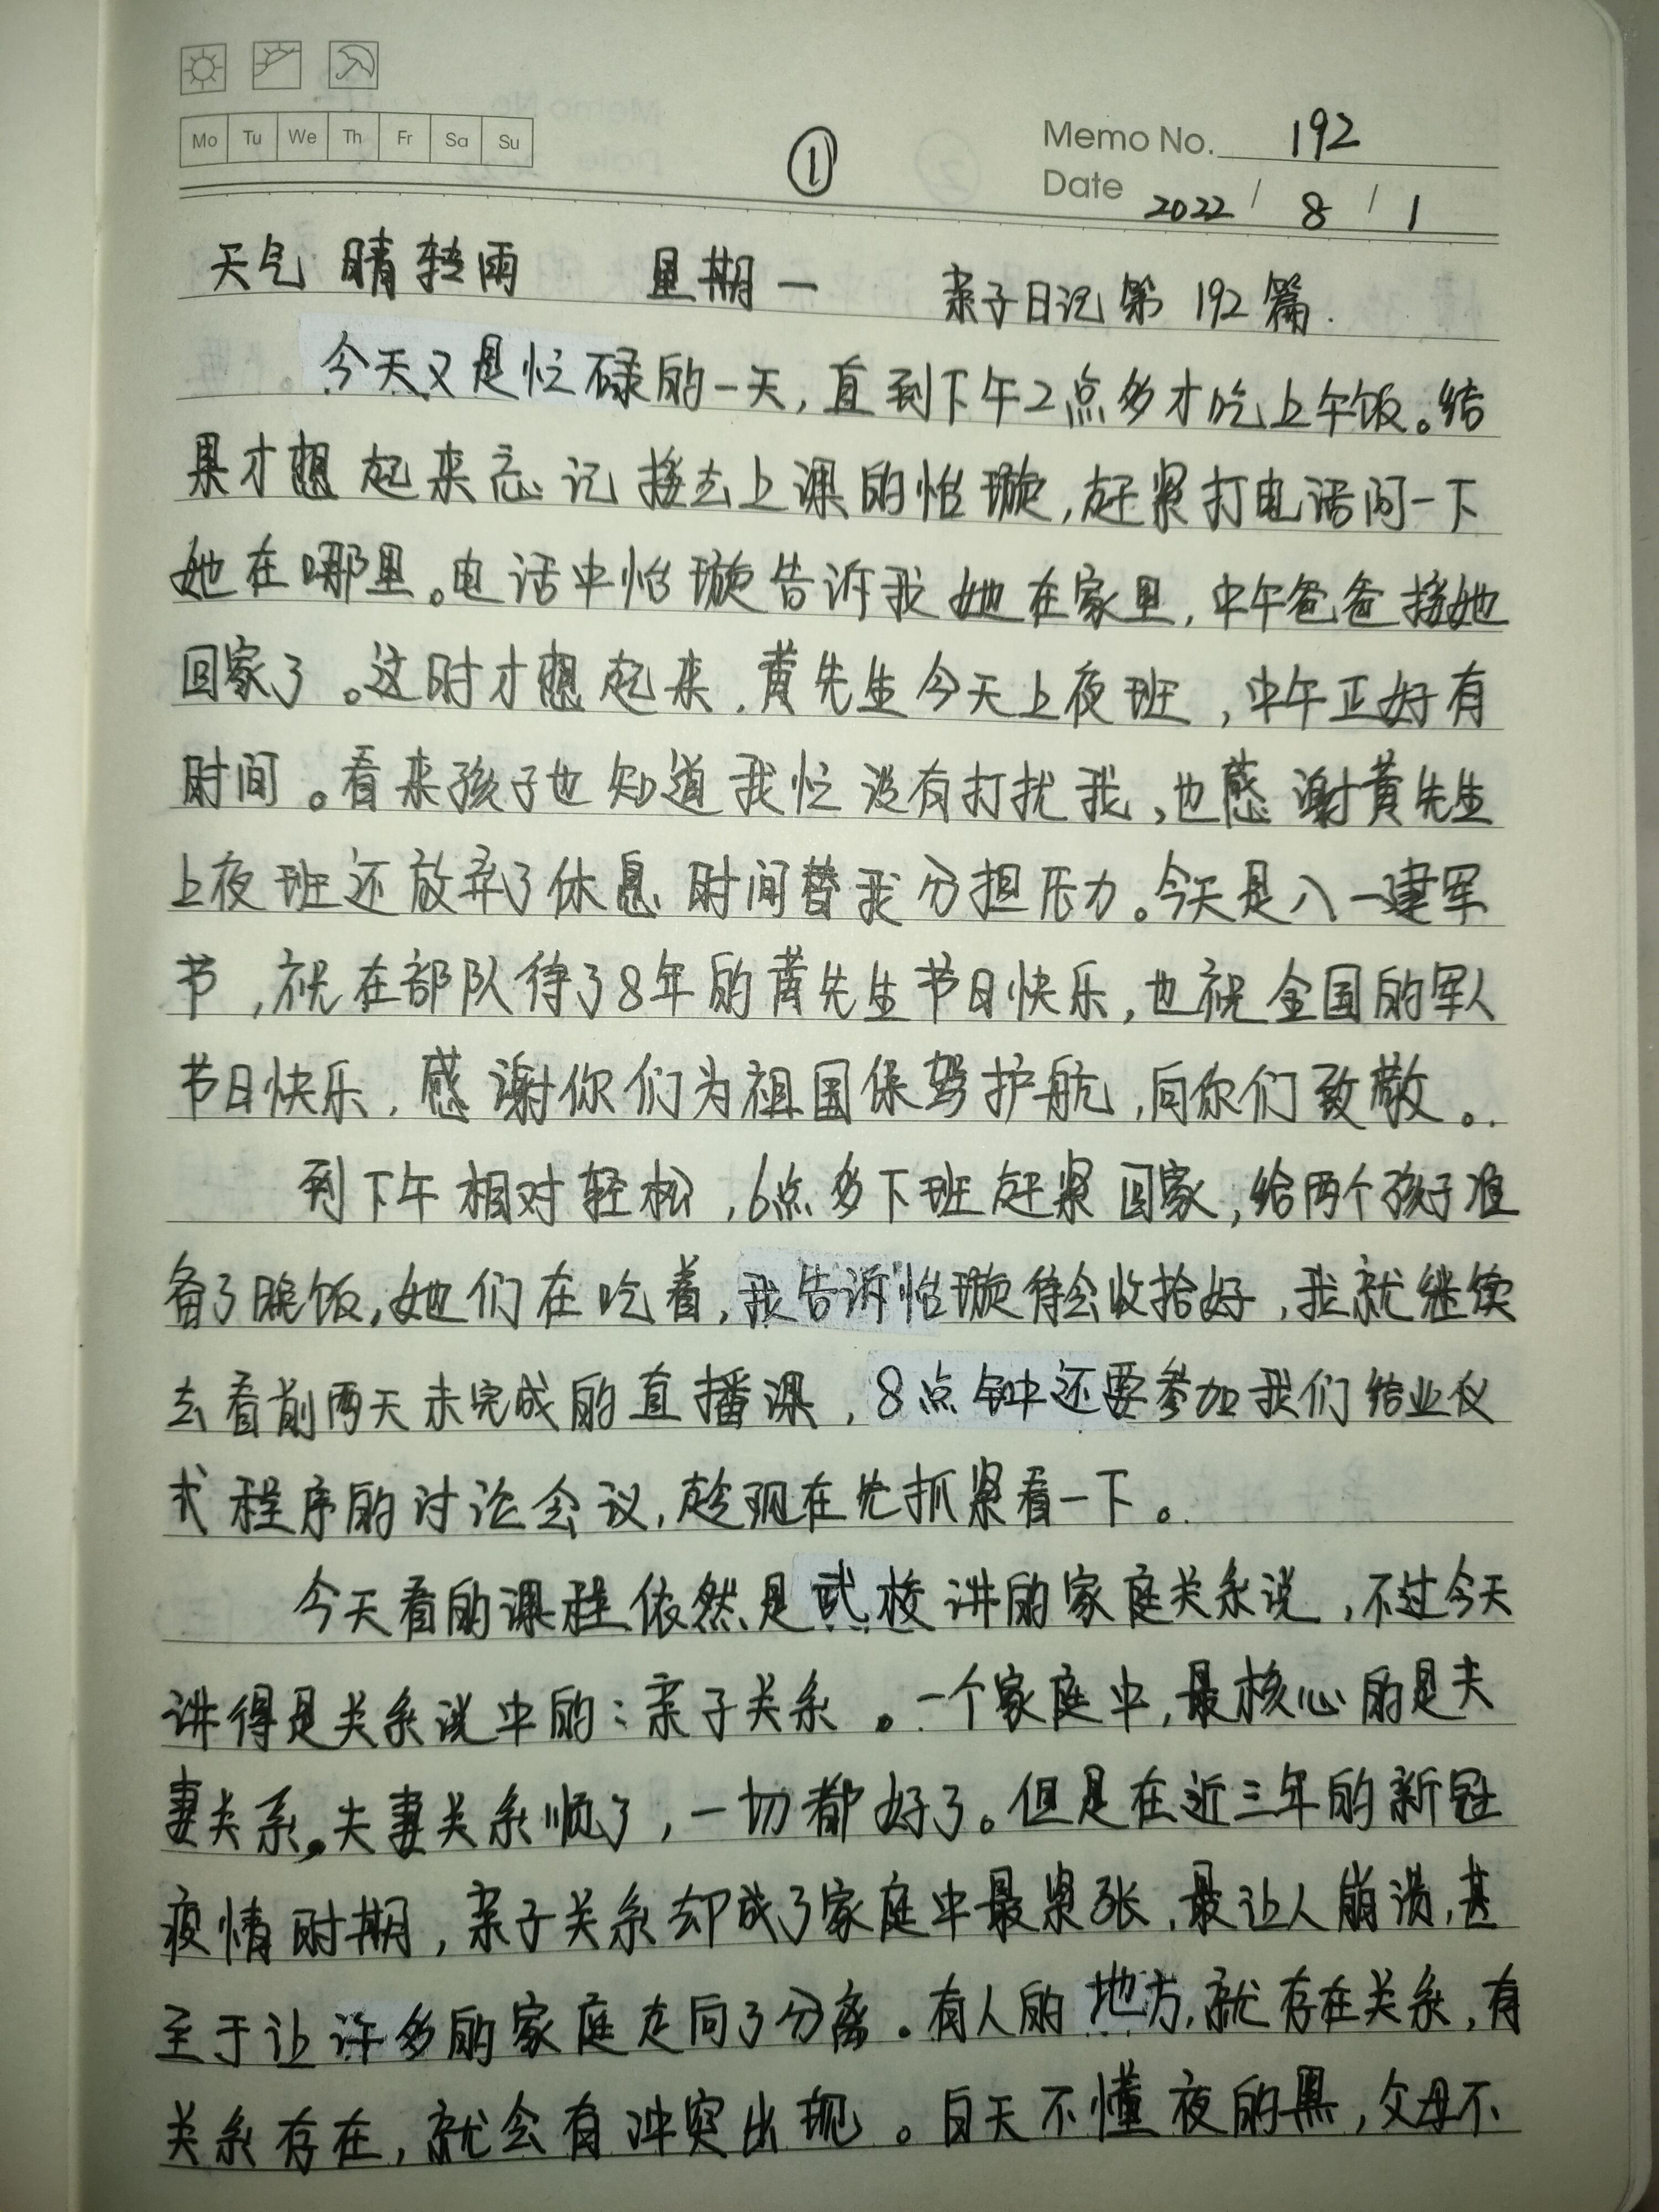 Mo Tu We Th Fr Sa Su
①
Memo No. 192
Date 2022 / 8 / 1
天气 晴转雨 星期一 亲子日记第192篇.
今天又是忙碌的一天,直到下午2点多才吃上午饭。结
果才想起来忘记接去上课的怡璇,赶紧打电话问一下
她在哪里。电话中怡璇告诉我她在家里,中午爸爸接她
回家了。这时才想起来,黄先生今天上夜班,中午正好有
时间。看来孩子也知道我忙没有打扰我,也感谢黄先生
上夜班还放弃了休息时间替我分担压力。今天是八一建军
节,祝在部队待了8年的黄先生节日快乐,也祝全国的军人
节日快乐,感谢你们为祖国保驾护航,向你们致敬。
到下午相对轻松,6点多下班赶紧回家,给两个孩子准
备了晚饭,她们在吃着,我告诉怡璇待会收拾好,我就继续
去看前两天未完成的直播课,8点钟还要参加我们结业仪
式程序的讨论会议,趁现在先抓紧看一下。
今天看的课程依然是武校讲的家庭关系说,不过今天
讲得是关系说中的:亲子关系。一个家庭中,最核心的是夫
妻关系。夫妻关系顺了,一切都好了。但是在近三年的新冠
疫情时期,亲子关系却成了家庭中最紧张,最让人崩溃,甚
至于让许多的家庭走向了分离。有人的地方,就存在关系,有
关系存在,就会有冲突出现。白天不懂夜的黑,父母不